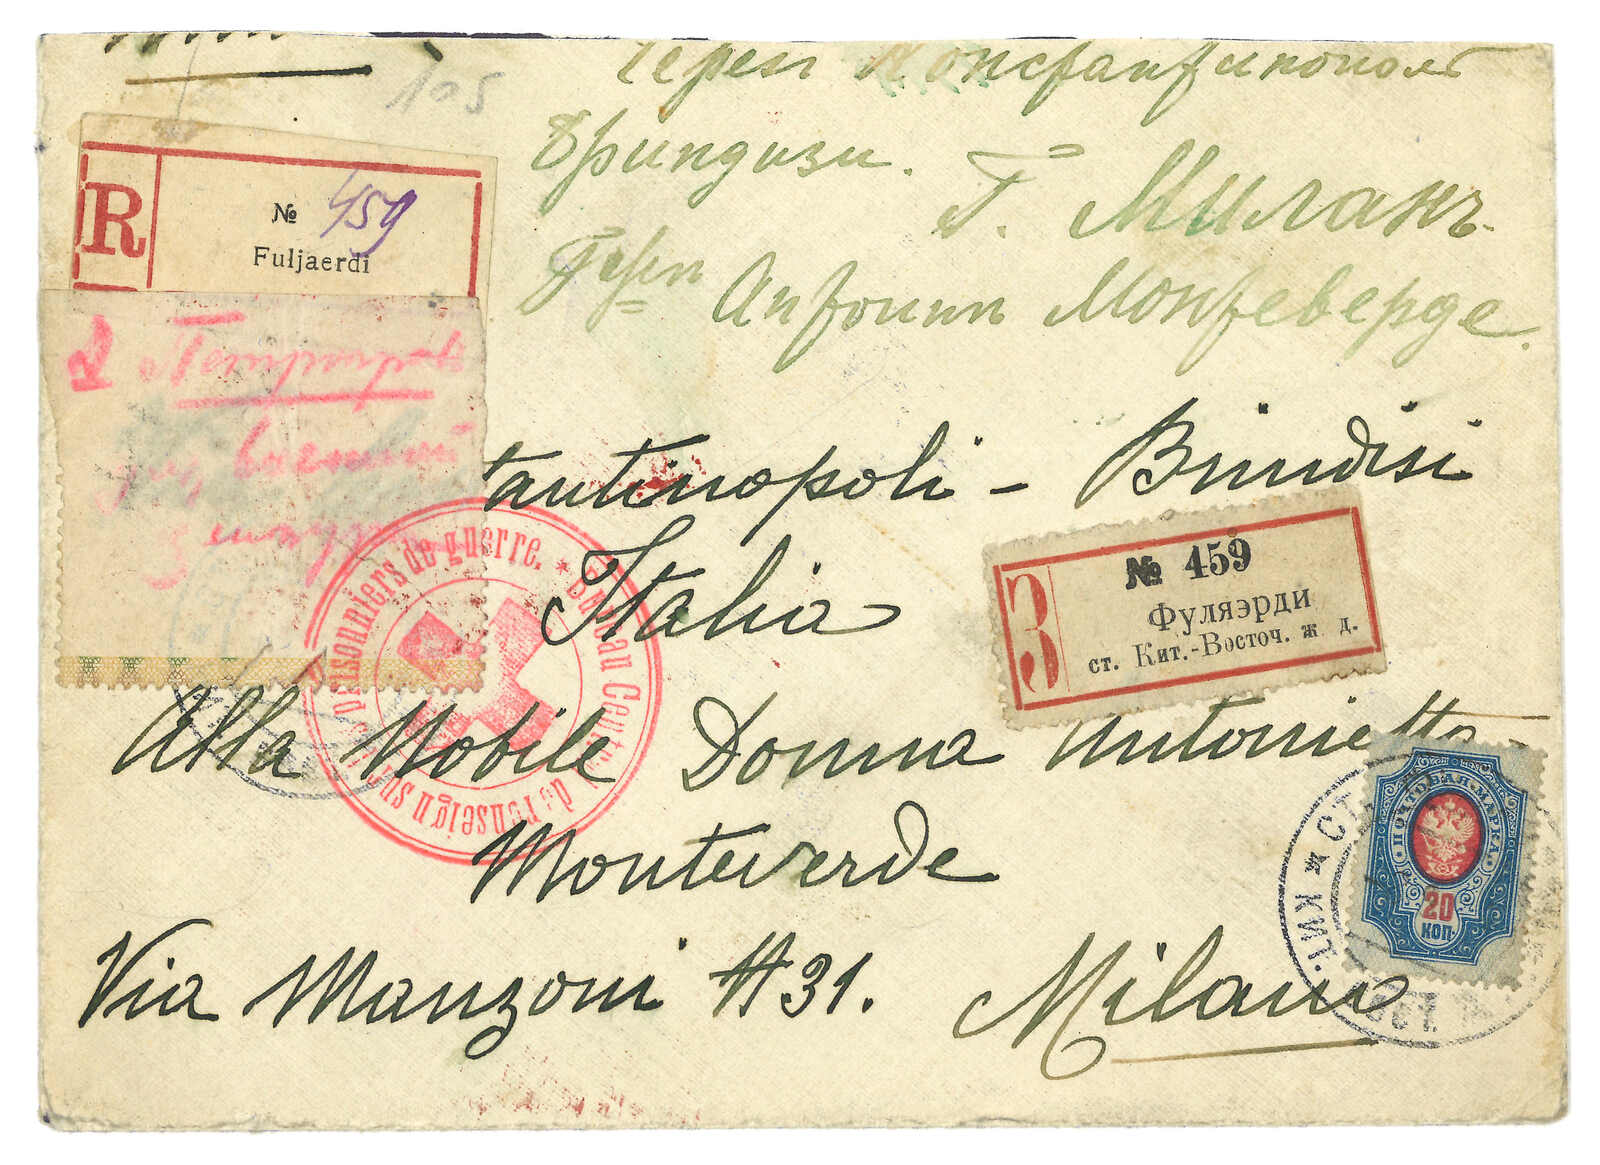 105
Черезъ Константинополь
Бриндизи.
Г. Миланъ.
Герп Антонип Монтеверде.
R
№ 459
Fuljaerdi
Петроградъ
военной
цензуры
tantinopoli - Brindisi
Italia
З
№ 459
Фуляэрди
ст. Кит.-Восточ. ж д.
prisonniers de guerre. * Bureau Central de renseign
Alla Nobile Donna Antonietta
Monteverde
Via Manzoni # 31. Milano
ПОЧТОВАЯ МАРКА
20
КОП.
КИТ. * СТ